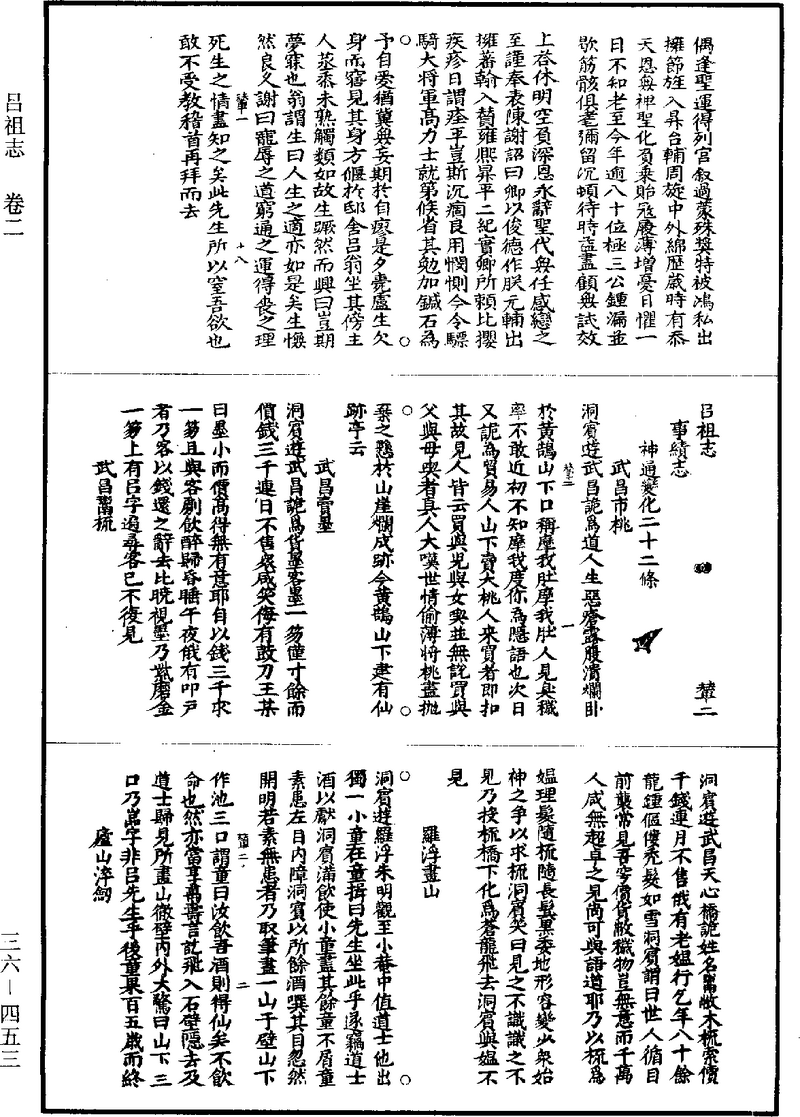 呂祖志　卷二
三六—四五三
偶逢聖運得列官敘過蒙殊獎特被鴻私出
擁節旌入昇台輔周旋中外綿歷歲時有忝
天恩無裨聖化負乘貽寇履薄增憂日懼一
日不知老至今年逾八十位極三公鍾漏並
歇筋骸俱耄彌留沉頓待時益盡顧無試效
上荅休明空負深恩永辭聖代無任感戀之
至謹奉表陳謝詔曰卿以俊德作朕元輔出
擁蕃翰入贊雍熙昇平二紀實卿所賴比攖
疾疹日謂痊平豈斯沉痼良用憫惻今令驃
騎大將軍高力士就第候省其勉加鍼石為
予自愛猶冀無妄期於有瘳是夕薨盧生欠
身而寤見其身方偃於邸舍呂翁坐其傍主
人蒸黍未熟觸類如故生蹶然而興曰豈期
夢寐也翁謂生曰人生之適亦如是矣生憮
然良久謝曰寵辱之道窮通之運得喪之理
輦一　十八
死生之情盡知之矣此先生所以窒吾欲也
敢不受教稽首再拜而去
呂祖志　輦二
事績志
神通變化二十二條
武昌市桃
洞賓遊武昌詭為道人生惡瘡露腹潰爛卧
輦二　一
於黃鵠山下口稱摩我肚摩我肚人見臭穢
率不敢近初不知摩我度你為隱語也次日
又詭為貿易人山下賣大桃人來買者即扣
其故見人皆云買與兒與女與妻並無說買與
父與母與者真人大嘆世情偷薄將桃盡拋
棄之懸於山崖爛成跡今黃鵠山下建有仙
跡亭云
武昌賣墨
洞賓遊武昌詭為貨墨客墨一笏僅寸餘而
價錢三千連日不售衆咸笑侮有鼓刀王某
曰墨小而價高得無有意耶自以錢三千求
一笏且與客劇飲醉歸昏睡午夜俄有叩戶
者乃客以錢還之辭去比晓視墨乃紫磨金
一笏上有呂字遍尋客已不復見
武昌鬻梳
洞賓遊武昌天心橋詭姓名鬻敝木梳索價
千錢連月不售俄有老媪行乞年八十餘
龍鍾傴僂禿髮如雪洞賓謂曰世人循目
前襲常見吾穹價貨敝穢物豈無意而千萬
人咸無超卓之見尚可與語道耶乃以梳為
媪理髮隨梳隨長鬒黑委地形容變少衆始
神之爭以求梳洞賓笑曰見之不識識之不
見乃投梳橋下化為蒼龍飛去洞賓與媪不
見
羅浮畫山
洞賓遊羅浮朱明觀至小菴中值道士他出
獨一小童在童揖曰先生坐此乎遂竊道士
酒以獻洞賓滿飲使小童盡其餘童不屑童
素患左目內障洞賓以所餘酒噀其目忽然
開明若素無患者乃取筆畫一山于壁山下
輦二　二
作池三口謂童曰汝飲吾酒則得仙矣不飲
命也然亦當享高壽言訖飛入石壁隱去及
道士歸見所畫山徹壁內外大驚曰山下三
口乃嵓字非呂先生乎後童果百五歲而終
廬山淬劒